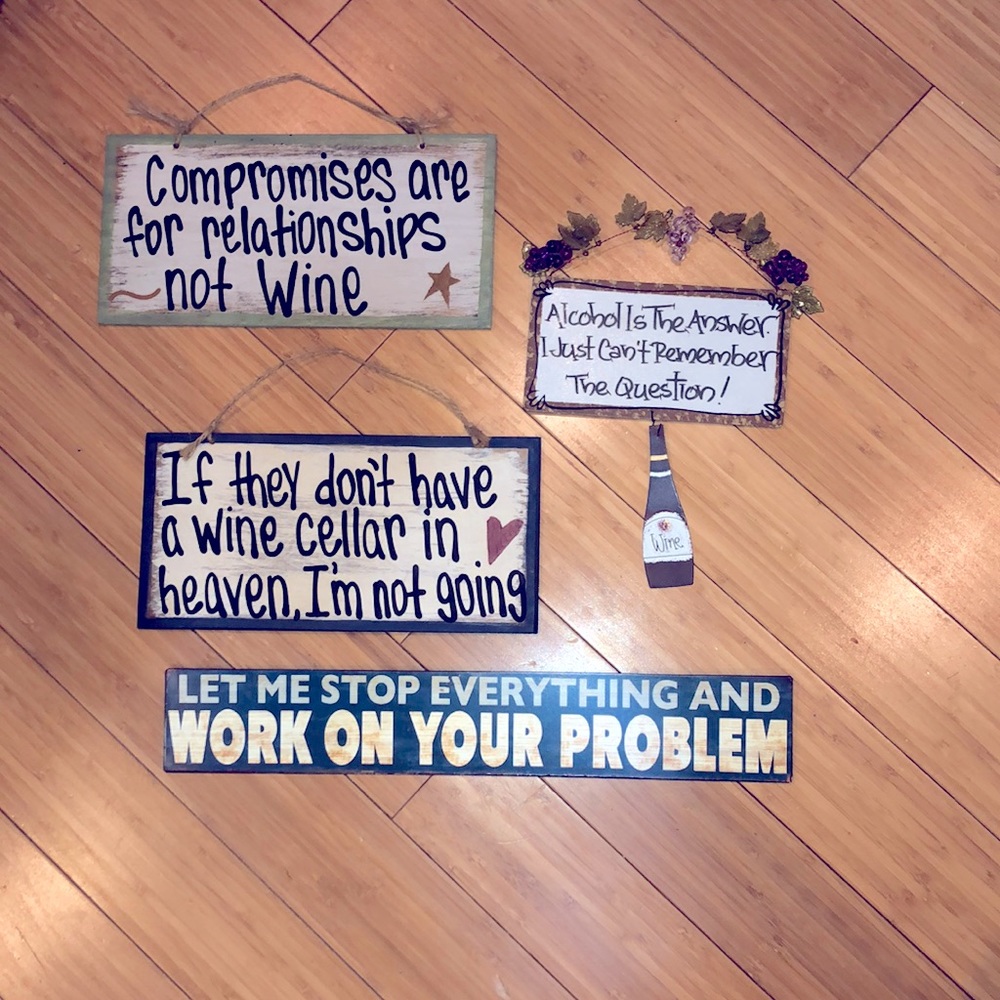 Compromises are
for relationships
not Wine
Alcohol Is The Answer
I Just Can't Remember
The Question!
Wine
If they don't have
a wine cellar in
heaven, I'm not going
LET ME STOP EVERYTHING AND
WORK ON YOUR PROBLEM